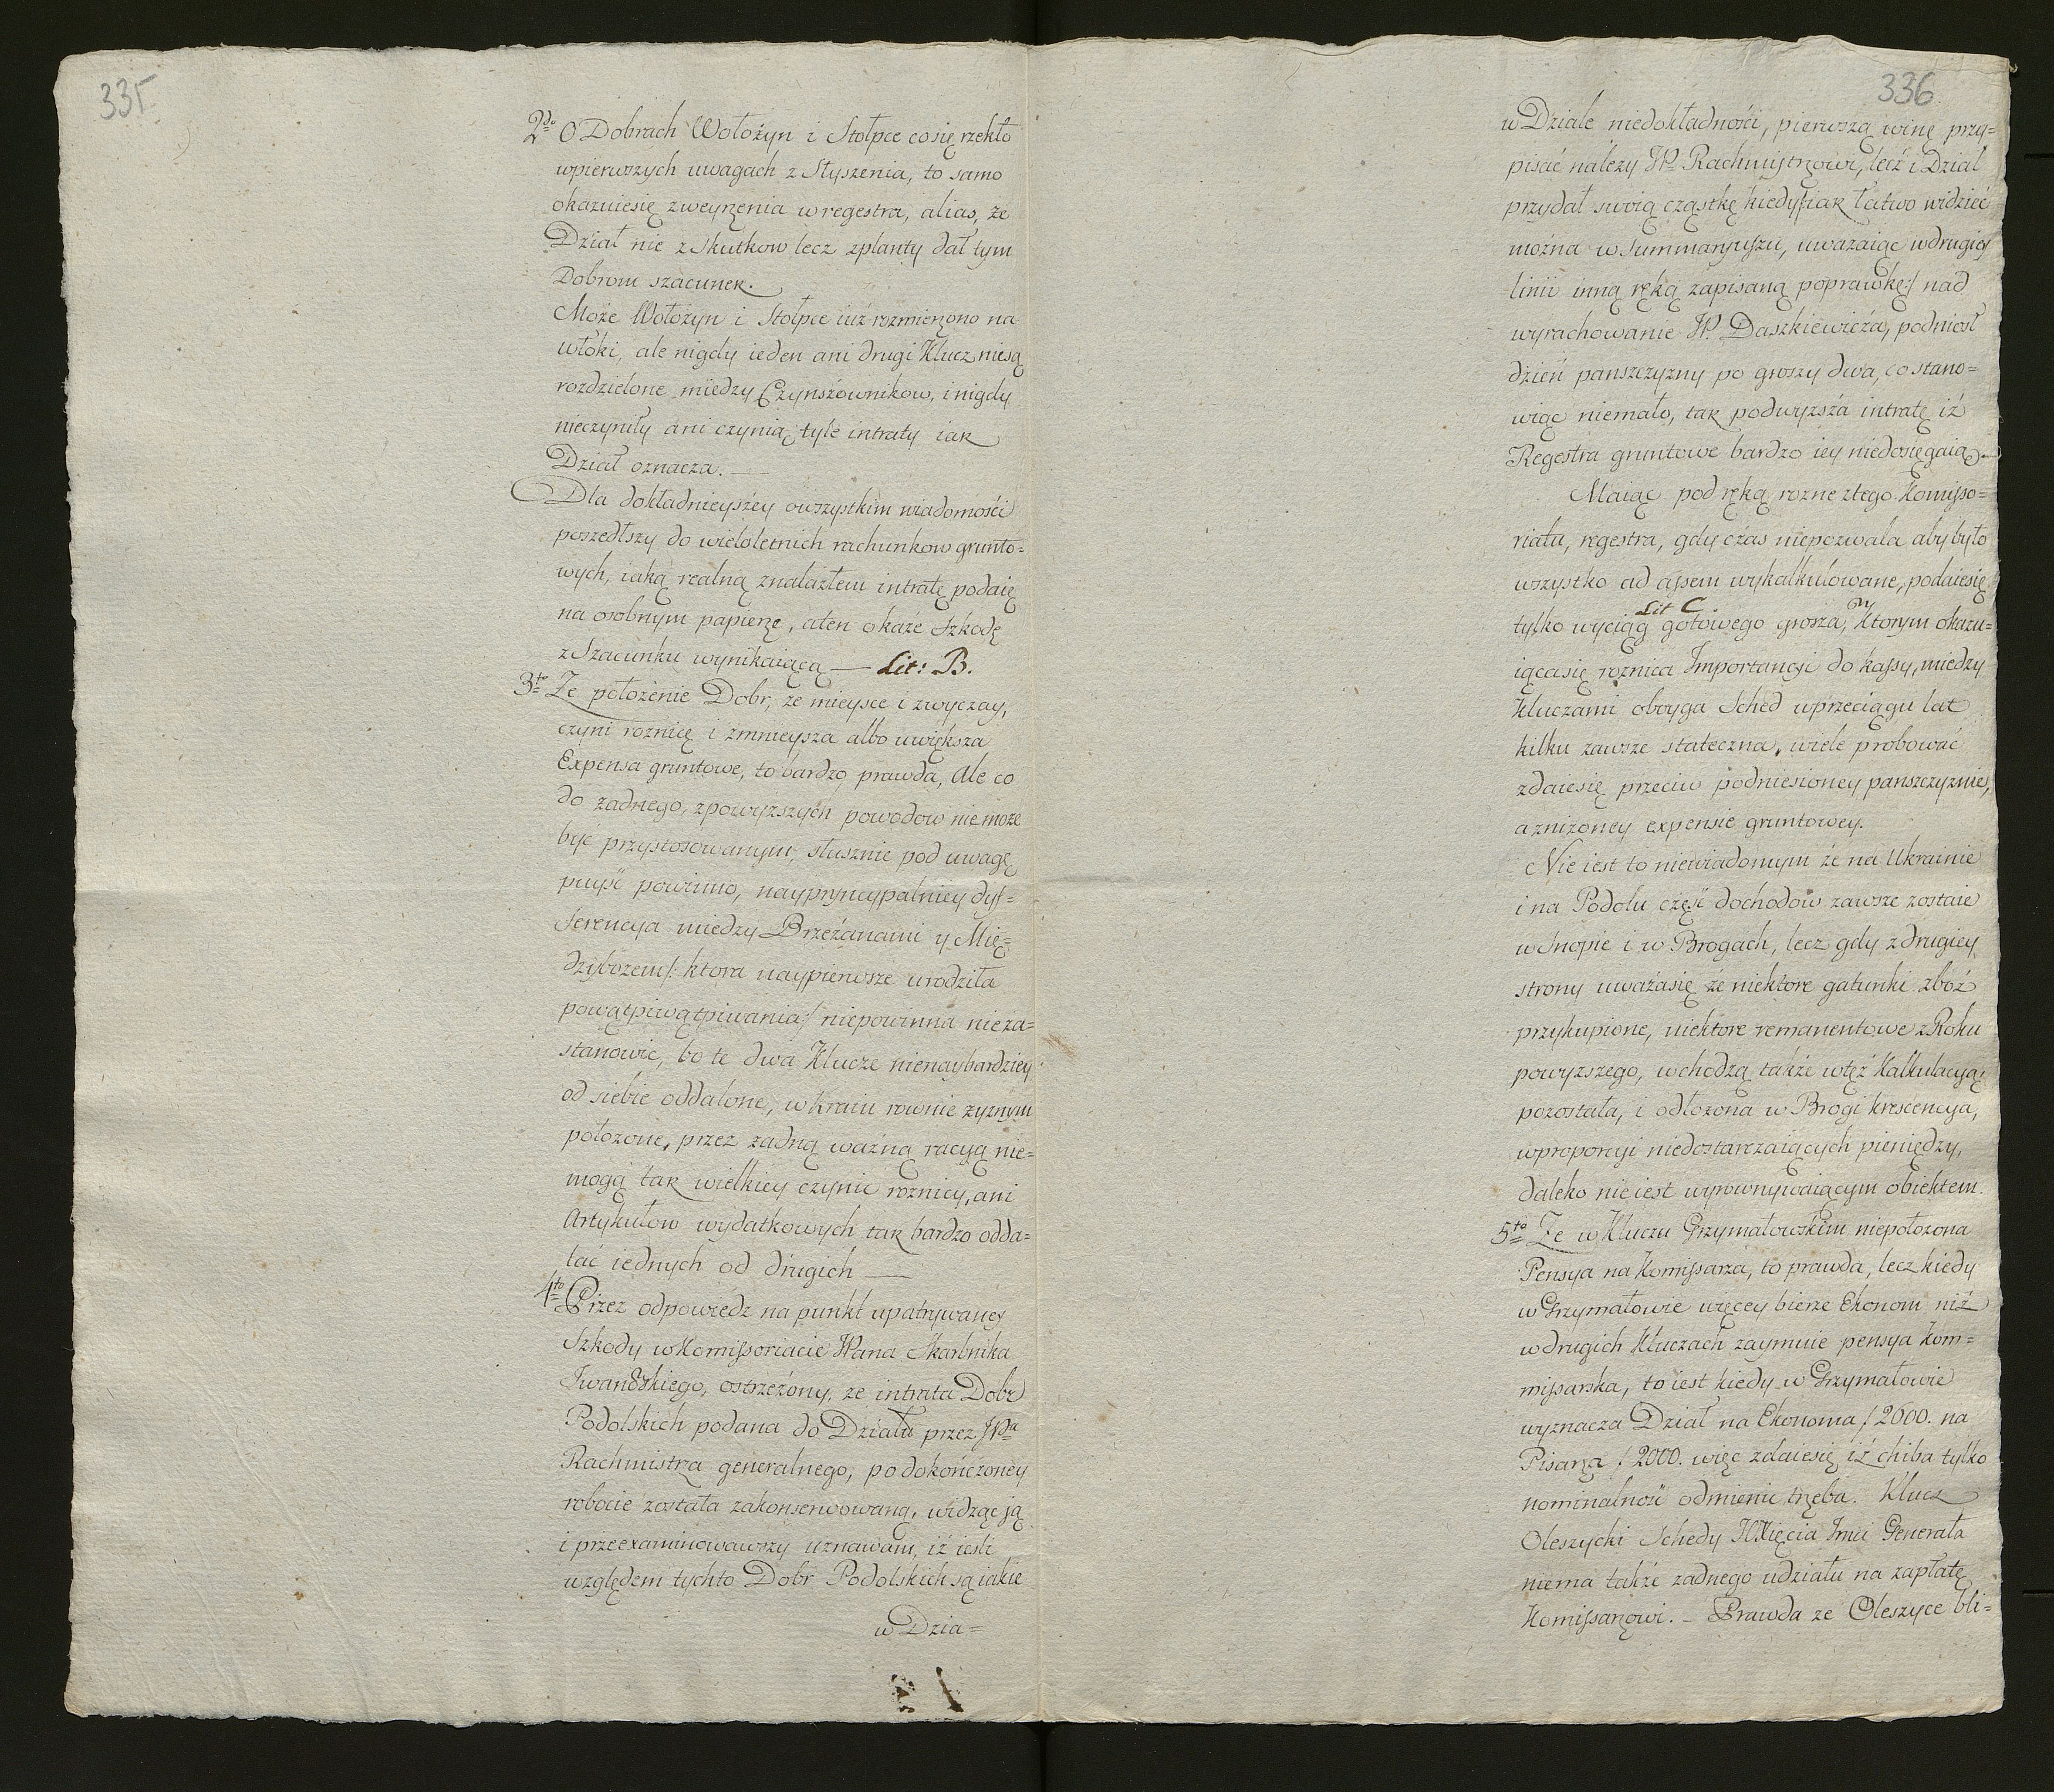 335
2do O Dobrach Wołożyn i Stołpce co się rzekło
wpierwszych uwagach z Słyszenia, to samo
okazuiesię zweyrzenia w regestra, alias, że
Dział nie z Skutkow lecz zplanty dał tym
Dobrom szacunek.
Może Wołożyn i Stołpce iuż rozmierzono na
włoki, ale nigdy ieden ani drugi Klucz niesą
rozdzielone między Czynszownikow, i nigdy
nieczyniły ani czynią tyle intraty iak
Dział oznacza. —
Dla dokładnieyszey owszystkim wiadomości
poszedłszy do wieloletnich rachunkow grunto=
wych, iaką realną znalazłem intratę podaię
na osobnym papierze, aten okaże Szkodę
z Szacunku wynikaiącą — Lit: B.
3tio Ze położenie Dobr, ze mieysce i zwyczay,
czyni roznicę i zmnieysza albo uwiększa
Expensa gruntowe, to bardzo prawda, Ale co
do zadnego, zpowyzszych powodow nie moze
być przystosowanym, słusznie pod uwagę
pluyść powinno, nayprzncypalniey dyf=
ferencya między Brzeżanami y Mię=
dzybozem/: ktora naypierwsze urodziła
powątpiwątpiwania:/ niepowinna nieza=
stanowić, bo te dwa Klucze nienaybardziey
od siebie oddalone, w kraiu rownie zyznym
położone, przez zadną ważną racyą nie=
mogą tak wielkiey czynić roznicy, ani
Artykułow wydatkowych tak bardzo odda=
lać iednych od drugich —
4to Przez odpowiedz na punkt upatrywaney
Szkody w Komissoriacie JPana Skarbnika
Iwańskiego, ostrzeżony, ze intrata Dobr
Podolskich podana do Działu przez JPa
Rachmistrza generalnego, po dokończoney
robocie została zakonserwowaną, widząc ją
i przeexaminowawszy uznawam, iż iesli
względem tychto Dobr Podolskich są iakie
w Dzia=
336
w Dziale niedokładności, pierwszą winę przy=
pisać nalezy JP. Rachmistrzowi, lecz i Dział
przydał swoią cząstkę kiedy/: iak łatwo widzieć
można w Summaryuszu, uwazaiąc wdrugiey
linii inną ręką zapisaną poprawkę:/ nad
wyrachowanie JP. Daszkiewicza, podniosł
dzień panszczyzny po groszy dwa, co stano=
wiąc niemało, tak podwyzsza intratę iż
Regestra gruntowe bardzo iey niedosięgaią.
Maiąc pod ręką rozne ztego Komisso=
riatu, regestra, gdy czas niepozwala aby było
wszystko ad assem wykalkulowane, podaiesię
Lit C. w
tylko wyciąg gotowego grosza, ktorym okazu=
iącasię roznica Importancyi do kassy, między
Kluczami oboyga Sched wprzeciągu lat
kilku zawsze stateczna, wiele probować
zdaiesię przeciw podniesioney panszczyznie,
a znizoney expensie gruntowey.
Nie iest to niewiadomym że na Ukrainie
i na Podolu część dochodow zawsze zostaie
w Snopie i w Brogach, lecz gdy zdrugiey
strony uważasię że niektore gatunki zboż
przykupione, niektore remanentowe z Roku
powyzszego, wchodzą także wtęż Kalkulacyą,
pozostała, i odłozona w Brogi krescencya,
wproporcyi niedostarczaiących pieniędzy,
daleko nieiest wyrownywaiącym obiektem.
5to Ze w Kluczu Grzymałowskim niepołozona
Pensya na Komissarza, to prawda, lecz kiedy
w Grzymałowie więcey bierze Ekonom niż
wdrugich Kluczach zaymuie pensya Kom=
missarska, to iest kiedy w Grzymałowie
wyznacza Dział na Ekonoma f 2600. na
Pisarza f 2000. więc zdaiesię iż chiba tylko
nominalność odmienić trzeba. Klucz
Oleszycki Schedy JOXięcia Jmci Generała
niema także zadnego udziału na zapłatę
Komissarzowi. — Prawda ze Oleszyce bli=